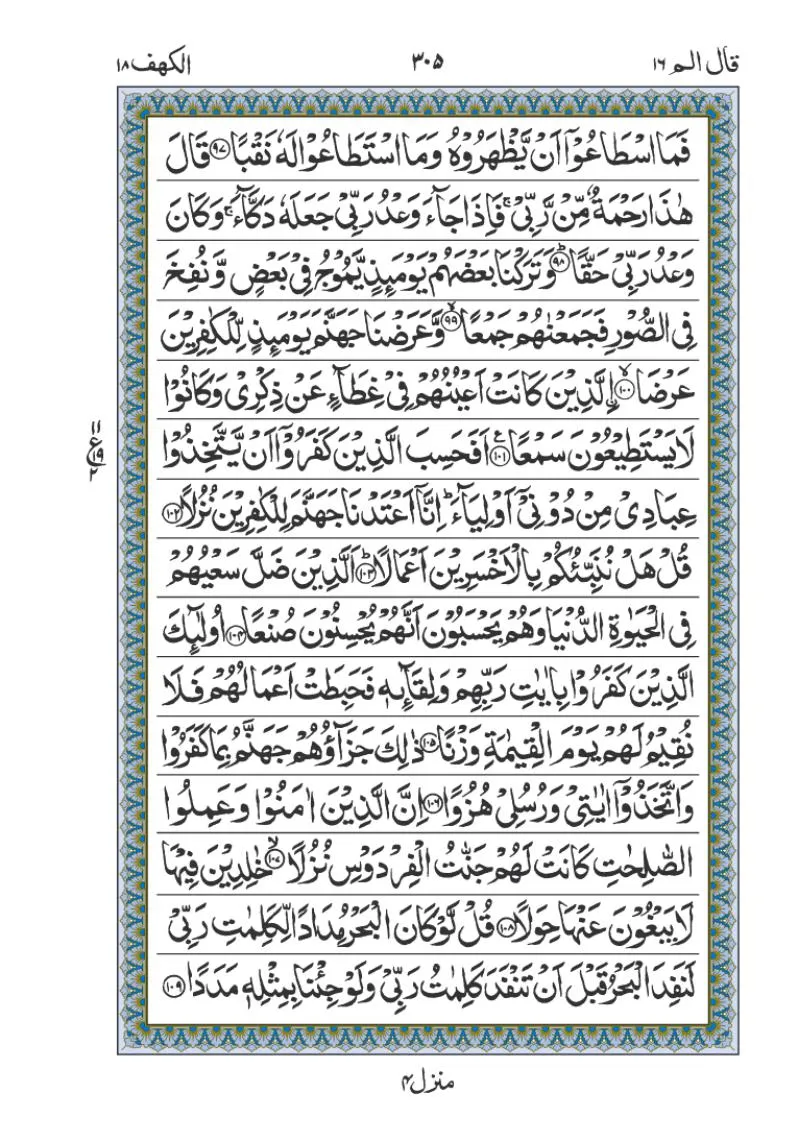 قال الم ١٦
٣٠٥
الكهف ١٨
فَمَا اسْطَاعُوْۤا اَنْ يَّظْهَرُوْهُ وَمَا اسْتَطَاعُوْا لَهٗ نَقْبًا ﴿٩٧﴾ قَالَ
هٰذَا رَحْمَةٌ مِّنْ رَّبِّيْ ۚ فَاِذَا جَآءَ وَعْدُ رَبِّيْ جَعَلَهٗ دَكَّآءَ ۚ وَكَانَ
وَعْدُ رَبِّيْ حَقًّا ؕ﴿٩٨﴾ وَتَرَكْنَا بَعْضَهُمْ يَوْمَىِٕذٍ يَّمُوْجُ فِيْ بَعْضٍ وَّنُفِخَ
فِي الصُّوْرِ فَجَمَعْنٰهُمْ جَمْعًا ۙ﴿٩٩﴾ وَّعَرَضْنَا جَهَنَّمَ يَوْمَىِٕذٍ لِّلْكٰفِرِيْنَ
عَرْضَا ۙ﴿١٠٠﴾ ۨالَّذِيْنَ كَانَتْ اَعْيُنُهُمْ فِيْ غِطَآءٍ عَنْ ذِكْرِيْ وَكَانُوْا
لَا يَسْتَطِيْعُوْنَ سَمْعًا ﴿١٠١﴾ اَفَحَسِبَ الَّذِيْنَ كَفَرُوْۤا اَنْ يَّتَّخِذُوْا
١١
ع
١٩
٢
عِبَادِيْ مِنْ دُوْنِيْۤ اَوْلِيَآءَ ؕ اِنَّاۤ اَعْتَدْنَا جَهَنَّمَ لِلْكٰفِرِيْنَ نُزُلًا ﴿١٠٢﴾
قُلْ هَلْ نُنَبِّئُكُمْ بِالْاَخْسَرِيْنَ اَعْمَالًا ؕ﴿١٠٣﴾ اَلَّذِيْنَ ضَلَّ سَعْيُهُمْ
فِي الْحَيٰوةِ الدُّنْيَا وَهُمْ يَحْسَبُوْنَ اَنَّهُمْ يُحْسِنُوْنَ صُنْعًا ﴿١٠٤﴾ اُولٰٓىِٕكَ
الَّذِيْنَ كَفَرُوْا بِاٰيٰتِ رَبِّهِمْ وَلِقَآىِٕهٖ فَحَبِطَتْ اَعْمَالُهُمْ فَلَا
نُقِيْمُ لَهُمْ يَوْمَ الْقِيٰمَةِ وَزْنًا ﴿١٠٥﴾ ذٰلِكَ جَزَآؤُهُمْ جَهَنَّمُ بِمَا كَفَرُوْا
وَاتَّخَذُوْۤا اٰيٰتِيْ وَرُسُلِيْ هُزُوًا ﴿١٠٦﴾ اِنَّ الَّذِيْنَ اٰمَنُوْا وَعَمِلُوا
الصّٰلِحٰتِ كَانَتْ لَهُمْ جَنّٰتُ الْفِرْدَوْسِ نُزُلًا ۙ﴿١٠٧﴾ خٰلِدِيْنَ فِيْهَا
لَا يَبْغُوْنَ عَنْهَا حِوَلًا ﴿١٠٨﴾ قُلْ لَّوْ كَانَ الْبَحْرُ مِدَادًا لِّكَلِمٰتِ رَبِّيْ
لَنَفِدَ الْبَحْرُ قَبْلَ اَنْ تَنْفَدَ كَلِمٰتُ رَبِّيْ وَلَوْ جِئْنَا بِمِثْلِهٖ مَدَدًا ﴿١٠٩﴾
منزل ٤